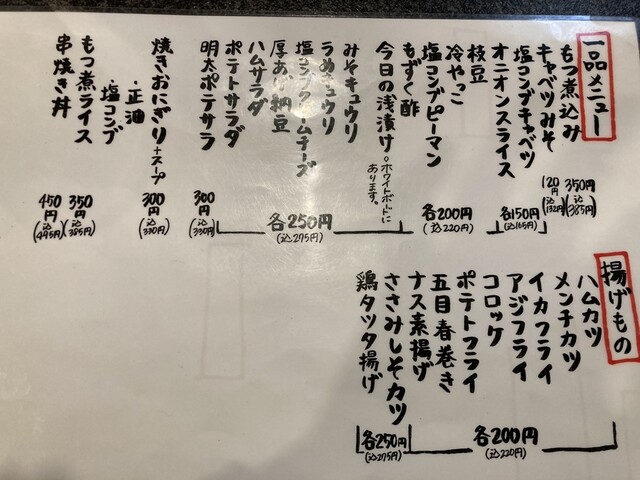 一品メニュー
もつ煮込み 350円 (込385円)
キャベツみそ 120円 (込132円)
塩コンブキャベツ
オニオンスライス
各150円 (込165円)
枝豆
冷やっこ
塩コンブピーマン
各200円 (込220円)
もずく酢
今日の浅漬け ○ホワイトボードに
あります。
みそキュウリ
うめキュウリ
塩コンブクリームチーズ
厚あげ納豆
ハムサラダ
ポテトサラダ
各250円 (込275円)
明太ポテサラ 300円 (込330円)
焼きおにぎり+スープ 300円 (込330円)
・正油
・塩コンブ
もつ煮ライス 350円 (込385円)
串焼き丼 450円 (込495円)
揚げもの
ハムカツ
メンチカツ
イカフライ
アジフライ
コロッケ
ポテトフライ
五目春巻き
ナス素揚げ
各200円 (込220円)
ささみしそカツ
鶏タツタ揚げ
各250円 (込275円)